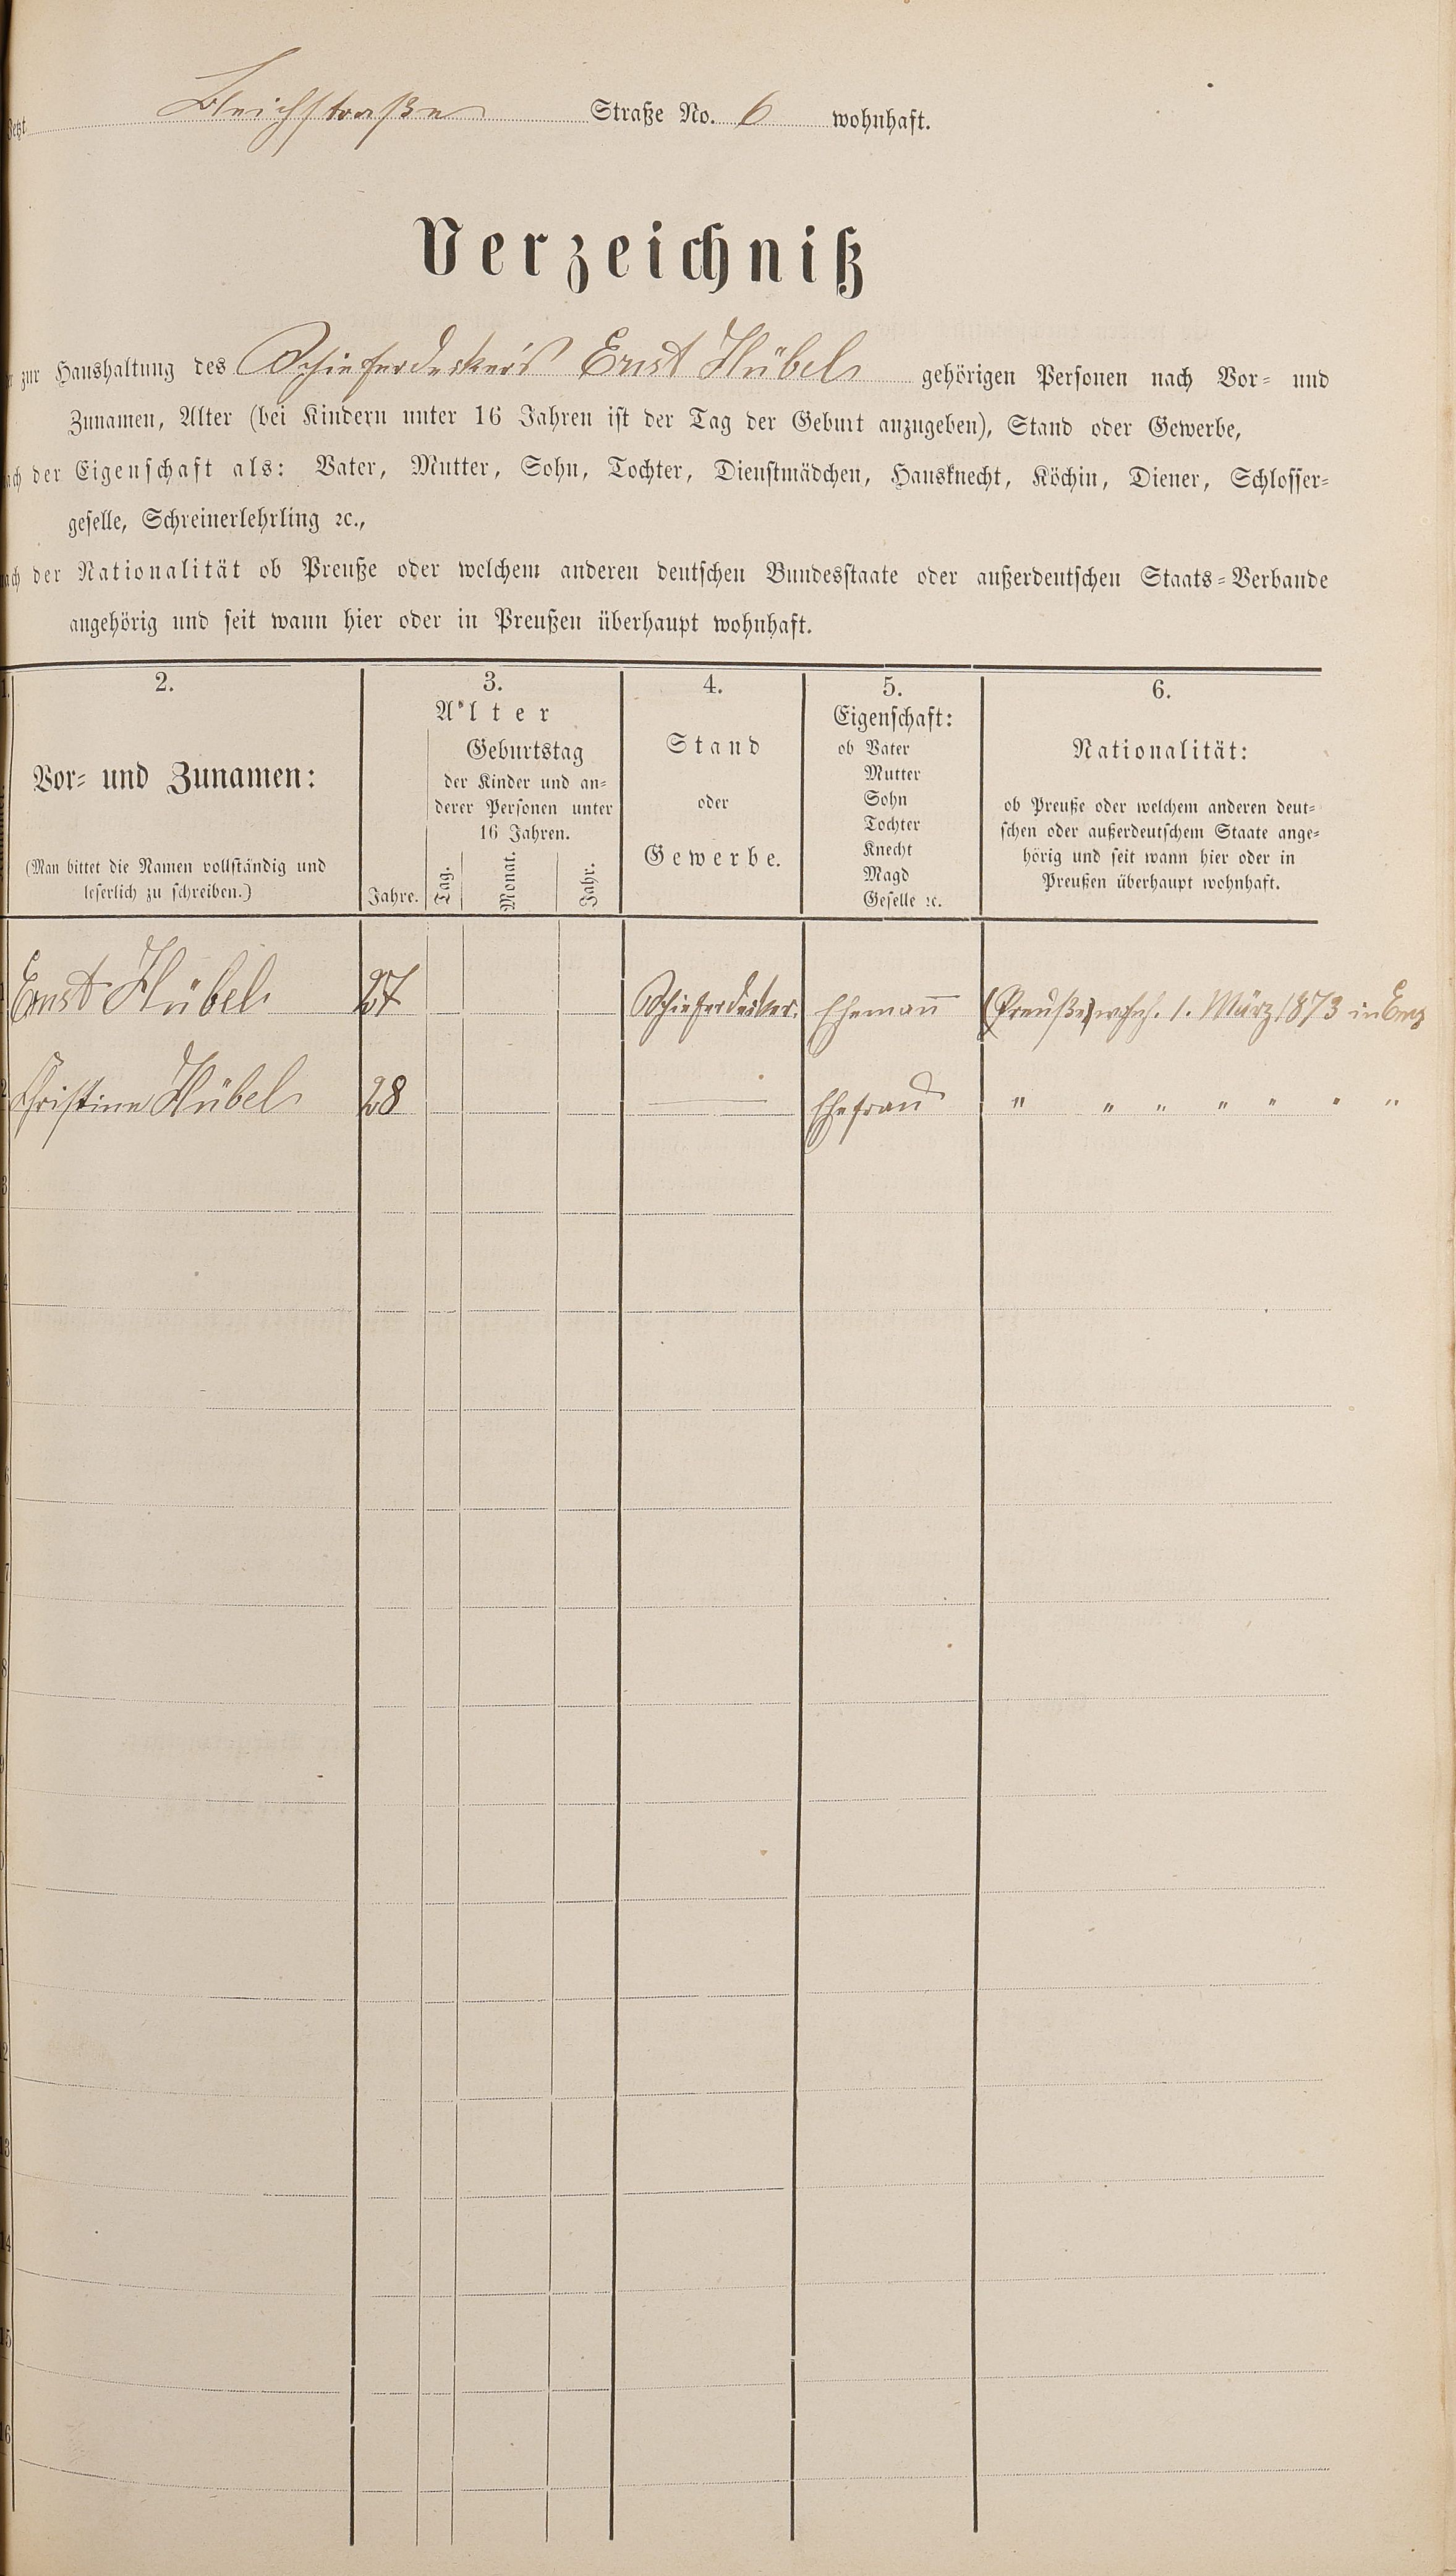 Jetzt Bleichstraße Straße No. 6 wohnhaft.
Verzeichniß
der zur Haushaltung des Schieferdecker's Ernst Hübel gehörigen Personen nach Vor- und
Zunamen, Alter (bei Kindern unter 16 Jahren ist der Tag der Geburt anzugeben), Stand oder Gewerbe,
nach der Eigenschaft als: Vater, Mutter, Sohn, Tochter, Dienstmädchen, Hausknecht, Köchin, Diener, Schlosser-
geselle, Schreinerlehrling ꝛc.,
nach der Nationalität ob Preuße oder welchem anderen deutschen Bundesstaate oder außerdeutschen Staats-Verbande
angehörig und seit wann hier oder in Preußen überhaupt wohnhaft.
1.
2.
Vor- und Zunamen:
(Man bittet die Namen vollständig und
leserlich zu schreiben.)
3.
Alter
Geburtstag
der Kinder und an-
derer Personen unter
16 Jahren.
Jahre. Tag. Monat. Jahr.
4.
Stand
oder
Gewerbe.
5.
Eigenschaft:
ob Vater
Mutter
Sohn
Tochter
Knecht
Magd
Geselle ꝛc.
6.
Nationalität:
ob Preuße oder welchem anderen deut-
schen oder außerdeutschem Staate ange-
hörig und seit wann hier oder in
Preußen überhaupt wohnhaft.
1 Ernst Hübel 27 Schieferdecker. Ehemann̄ (Preuße) wohnh. 1. März 1873 in Ems
2 Christine Hübel 28 — Ehefrau " " " " " " "
3
4
5
6
7
8
9
10
11
12
13
14
15
16